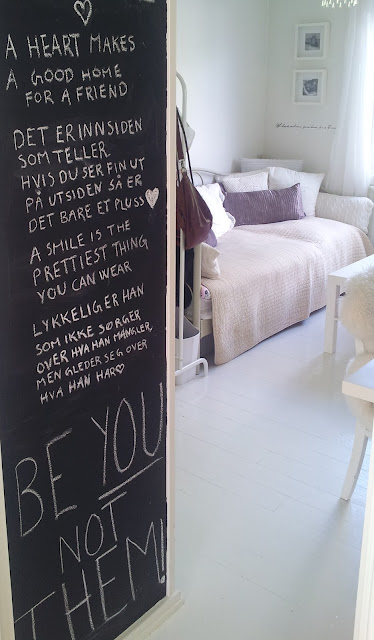 A HEART MAKES
A GOOD HOME
FOR A FRIEND
DET ER INNSIDEN
SOM TELLER
HVIS DU SER FIN UT
PÅ UTSIDEN SÅ ER
DET BARE ET PLUSS
A SMILE IS THE
PRETTIEST THING
YOU CAN WEAR
LYKKELIG ER HAN
SOM IKKE SØRGER
OVER HVA HAN MANGLER,
MEN GLEDER SEG OVER
HVA HAN HAR
BE YOU
NOT
THEM!